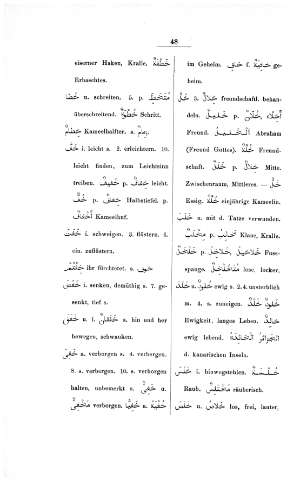 48
eiserner Haken, Kralle, خطفة
Erhaschtes.
خطا u. schreiten. 5. p.
überschreitend. خطوة Schritt.
خطام Kameelhalfter. a.
خف i. leicht a. 2. erleichtern. 10.
leicht finden, zum Leichtsinn
treiben. خفيف p. خفاف leicht.
خف p. خفاف Halbstiefel. p.
اخفاف Kameelhuf.
خفت i. schweigen. 3. flüstern. 4.
ein. zuflüstern.
ihr fürchtetet. s.
خفض i. senken, demüthig s. 7. ge-
senkt, tief s.
خفق u. i. hin und her
bewegen, schwanken.
خفى a. verborgen s. 4. verborgen.
8. s. verborgen. 10. s. verborgen
halten, unbemerkt s. خفى u.
verborgen. خفيا u. خفية
im Geheim. f. خافية ge-
heim.
خل 3. خلال freundschaftl. behan-
deln. خليل p. خلان, اخلاء
Freund. الخليل Abraham
(Freund Gottes). خلة Freund-
schaft. خلل p. خلال Mitte.
Zwischenraum, Mittleres. خل —
Essig. einjährige Kameelin.
خلب u. mit d. Tatze verwunden.
مخلب p. مخالب Klaue, Kralle.
خلخل p. خلاخل, خلاخيل Fuss-
spange. متخلخل lose, locker.
خلد u. خلود ewig s. 2. 4. unsterblich
m. 4. s. zuneigen. خلود
Ewigkeit, langes Leben. خالد
ewig lebend. الجزائر الخالدة
d. kanarischen Inseln.
خلس i. hinwegstehlen. خلسة
Raub. räuberisch.
خلص u. خلاص los, frei, lauter,